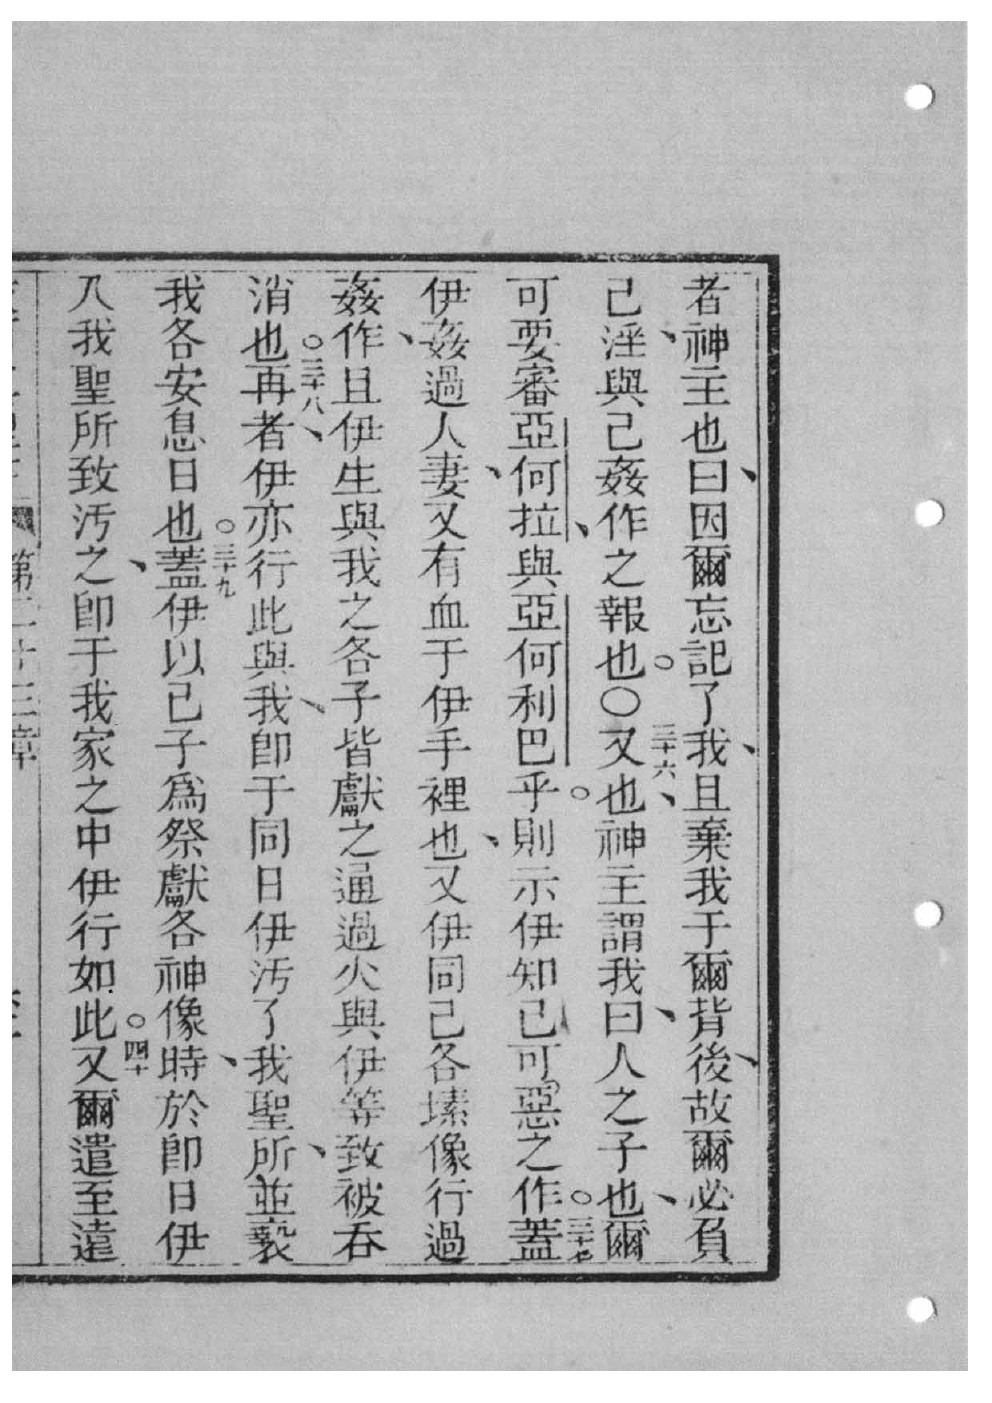 者神主也曰因爾忘記了我且棄我于爾背後故爾必負
己淫與己姦作之報也○三十六又也神主謂我曰人之子也爾
可要審亞何拉與亞何利巴乎則示伊知己可惡之作三十七蓋
伊姦過人妻又有血于伊手裡也又伊同己各㙛像行過
姦作且伊生與我之各子皆獻之通過火與伊等致被吞
消也三十八再者伊亦行此與我卽于同日伊汚了我聖所並褻
我各安息日也三十九蓋伊以己子爲祭獻各神像時於卽日伊
入我聖所致汚之卽于我家之中伊行如此四十又爾遣至遠
第二十三章